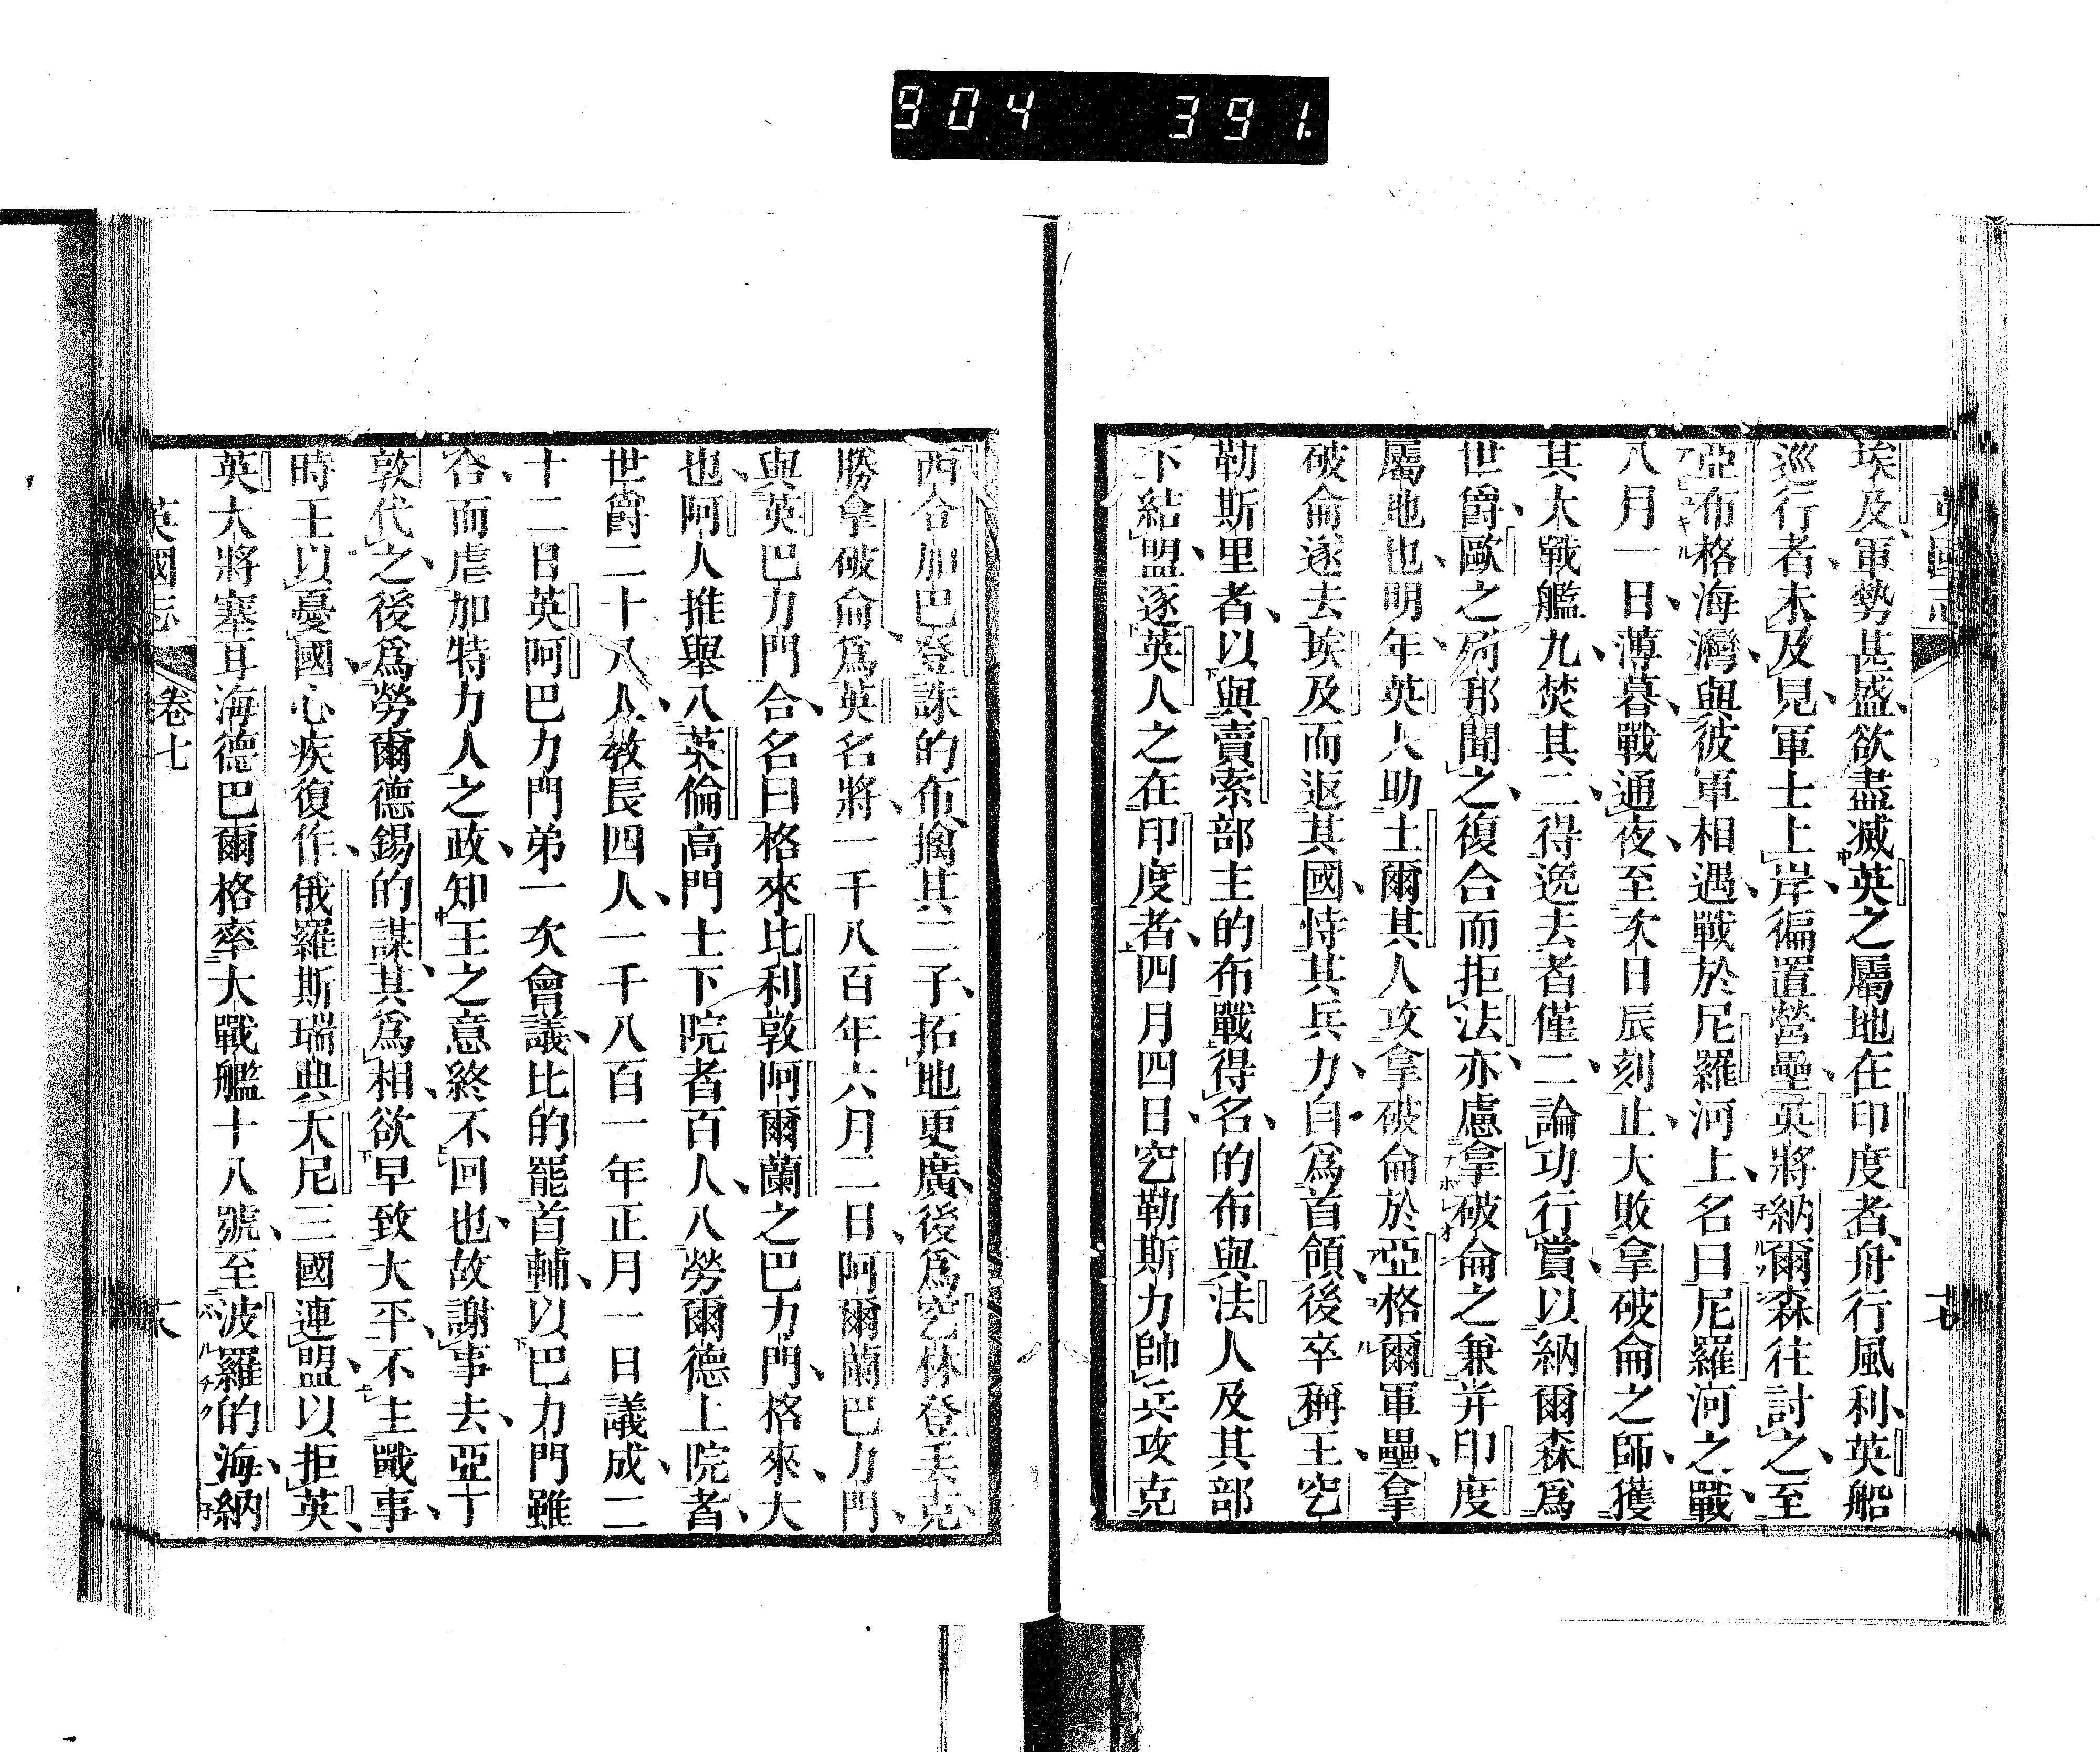 904 391.
英國志
埃及、軍勢甚盛、欲盡滅英之屬地在印度者、舟行風利、英船
巡行者、未及見、軍士上岸、徧置營壘、英將納爾森往討之、至
亞布格海灣、與彼軍相遇、戰於尼羅河上、名曰尼羅河之戰、
八月一日、薄暮、戰通夜、至次日辰刻止、大敗拿破侖之師、獲
其大戰艦九、焚其二、得逸去者僅二、論功行賞、以納爾森爲
世爵、歐之列邦聞之、復合而拒法、亦慮拿破侖之兼并印度
屬地也、明年、英人助土爾其人攻拿破侖於亞格爾軍壘、拿
破侖遂去埃及而返其國、恃其兵力、自爲首領、後卒稱王、空
勒斯里者、以與賣索部主的布戰得名、的布與法人及其部
下結盟、逐英人之在印度者、四月四日、空勒斯力帥兵攻克
十七
西合加巴登、誅的布、擒其二子、拓地更廣、後爲空林登丢克、
勝拿破侖、爲英名將、一千八百年六月二日、阿爾蘭巴力門、
與英巴力門合、名曰格來比利敦阿爾蘭之巴力門、格來、大
也、阿人推舉八英倫高門士下院者百人、八勞爾德上院者、
世爵二十八人、教長四人、一千八百一年正月一日議成、二
十二日、英阿巴力門弟一次會議、比的罷首輔、以巴力門雖
合、而虐加特力人之政、知王之意終不回也、故謝事去、亞丁
敦代之、後爲勞爾德錫的謀、其爲相、欲早致大平、不主戰事、
時王以憂國、心疾復作、俄羅斯瑞典大尼三國連盟、以拒英、
英大將塞耳海德巴爾格率大戰艦十八號、至波羅的海、納
英國志 卷七